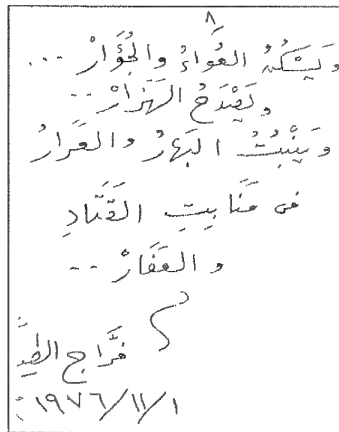 ٨
وَيَسْكُتُ العُوَاءُ والجُؤَارْ ...
وَيَصْدَحُ الهَزَارْ ..
وَيَنْبُتُ البَهَارُ والعَرَارُ
في مَنَابِتِ القَتَادِ
والقفَارْ ..
فرَّاج الطيِّ
١٩٧٦/١١/١